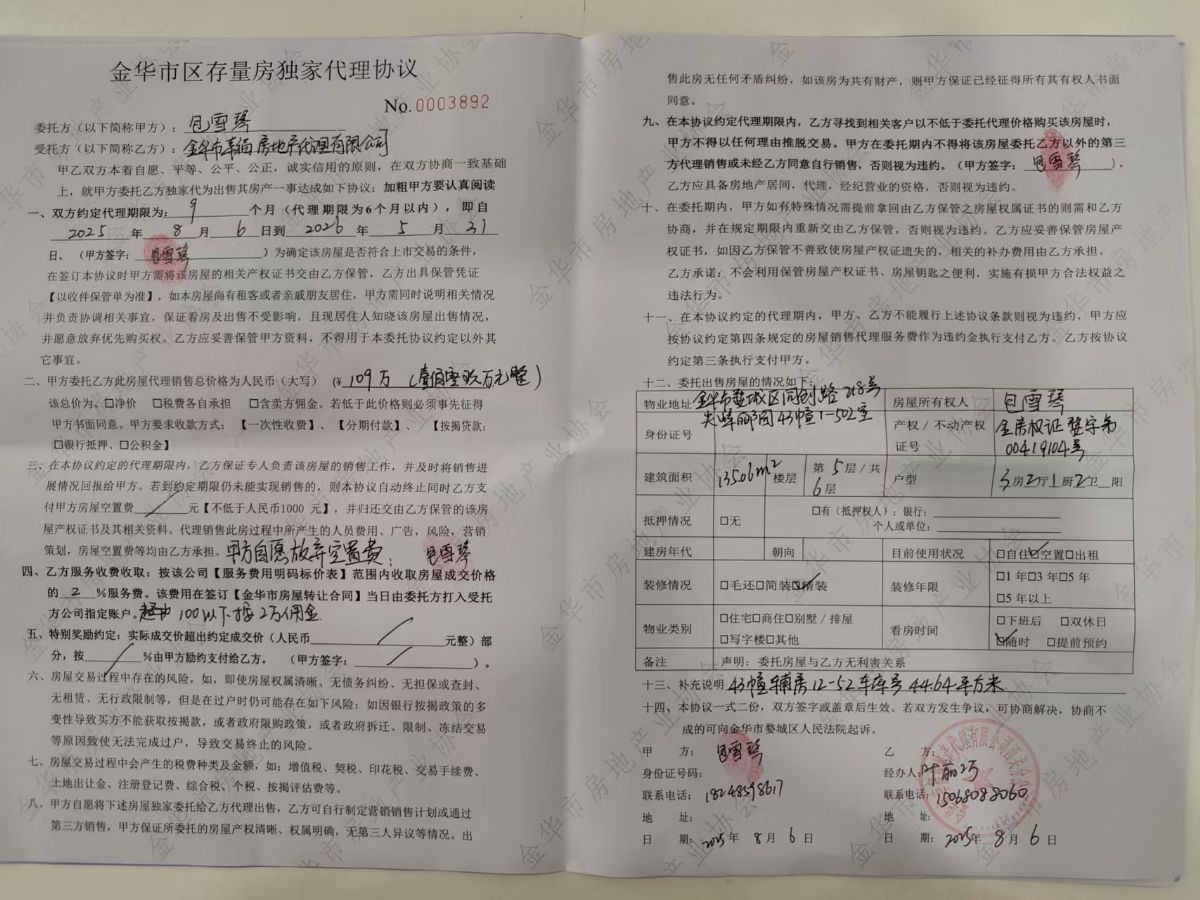 金华市区存量房独家代理协议
No.0003892
委托方（以下简称甲方）：包雪琴
受托方（以下简称乙方）：金华市 房地产代理有限公司
甲乙双方本着自愿、平等、公平、公正，诚实信用的原则，在双方协商一致基础
上，就甲方委托乙方独家代为出售其房产一事达成如下协议：加粗甲方要认真阅读
一、双方约定代理期限为：9个月（代理期限为6个月以内），即自
2025年8月6日到2026年5月31
日。（甲方签字：包雪琴）为确定该房屋是否符合上市交易的条件，
在签订本协议时甲方需将该房屋的相关产权证书交由乙方保管，乙方出具保管凭证
【以收件保管单为准】，如本房屋尚有租客或者亲戚朋友居住，甲方需同时说明相关情况
并负责协调相关事宜，保证看房及出售不受影响，且现居住人知晓该房屋出售情况，
并愿意放弃优先购买权。乙方应妥善保管甲方资料，不得用于本委托协议约定以外其
它事宜。
二、甲方委托乙方此房屋代理销售总价格为人民币（大写）（¥109万（壹佰零玖万元整）
该总价为、□净价 □税费各自承担 □含卖方佣金。若低于此价格则必须事先征得
甲方书面同意。甲方要求收款方式：【一次性收费】、【分期付款】、【按揭贷款：
□银行抵押、□公积金】
三、在本协议约定的代理期限内，乙方保证专人负责该房屋的销售工作，并及时将销售进
展情况回报给甲方。若到约定期限仍未能实现销售的，则本协议自动终止同时乙方支
付甲方房屋空置费／元【不低于人民币1000元】，并归还交由乙方保管的该房
屋产权证书及其相关资料。代理销售此房过程中所产生的人员费用、广告，风险，营销
策划，房屋空置费等均由乙方承担。甲方自愿放弃空置费：包雪琴
四、乙方服务收费收取：按该公司【服务费用明码标价表】范围内收取房屋成交价格
的2%服务费。该费用在签订【金华市房屋转让合同】当日由委托方打入受托
方公司指定账户。 100以下按2万佣金
五、特别奖励约定：实际成交价超出约定成交价（人民币／元整）部
分，按／%由甲方励约支付给乙方。（甲方签字：／）。
六、房屋交易过程中存在的风险，如，即使房屋权属清晰、无债务纠纷、无担保或查封、
无租赁、无行政限制等，但是在过户时仍可能存在如下风险：如因银行按揭政策的多
变性导致买方不能获取按揭款，或者政府限购政策，或者政府拆迁、限制、冻结交易
等原因致使无法完成过户，导致交易终止的风险。
七、房屋交易过程中会产生的税费种类及金额，如：增值税、契税、印花税、交易手续费、
土地出让金、注册登记费、综合税、个税、按揭评估费等。
八、甲方自愿将下述房屋独家委托给乙方代理出售，乙方可自行制定营销销售计划或通过
第三方销售，甲方保证所委托的房屋产权清晰、权属明确，无第三人异议等情况。出
售此房无任何矛盾纠纷，如该房为共有财产，则甲方保证已经征得所有其有权人书面
同意。
九、在本协议约定代理期限内，乙方寻找到相关客户以不低于委托代理价格购买该房屋时，
甲方不得以任何理由推脱交易。甲方在委托期内不得将该房屋委托乙方以外的第三
方代理销售或未经乙方同意自行销售，否则视为违约。（甲方签字：包雪琴）。
乙方应具备房地产居间，代理，经纪营业的资格，否则视为违约。
十、在委托期内，甲方如有特殊情况需提前拿回由乙方保管之房屋权属证书的则需和乙方
协商，并在规定期限内重新交由乙方保管，否则视为违约。乙方应妥善保管房屋产
权证书，如因乙方保管不善致使房屋产权证遗失的，相关的补办费用由乙方承担。
乙方承诺：不会利用保管房屋产权证书、房屋钥匙之便利，实施有损甲方合法权益之
违法行为。
十一、在本协议约定的代理期内，甲方、乙方不能履行上述协议条款则视为违约，甲方应
按协议约定第四条规定的房屋销售代理服务费作为违约金执行支付乙方。乙方按协议
约定第三条执行支付甲方。
十二、委托出售房屋的情况如下：
物业地址 金华市婺城区同创路218号 房屋所有权人 包雪琴
尖峰郦园43幢1-502室
身份证号 产权/不动产权证号 金房权证婺字第00419104号
建筑面积 135.06m² 楼层 第5层/共6层 户型 3房2厅1厨2卫_阳
抵押情况 □无 □有（抵押权人）：银行：
个人或单位：
建房年代 朝向 目前使用状况 □自住☑空置□出租
装修情况 □毛还□简装☑精装 装修年限 □1年□3年□5年
□5年以上
物业类别 □住宅□商住□别墅/排屋 看房时间 □下班后 □双休日
□写字楼□其他 ☑随时 □提前预约
备注 声明：委托房屋与乙方无利害关系
十三、补充说明 43幢辅房12-52车库号 44.64平方米
十四、本协议一式二份，双方签字或盖章后生效。若双方发生争议，可协商解决，协商不
成的可向金华市婺城区人民法院起诉。
甲 方：包雪琴 乙 方：
身份证号码： 经办人：叶丽巧
联系电话：18248598617 联系电话：15068088060
地 址： 地 址：
日 期：2025年8月6日 日 期：2025年8月6日